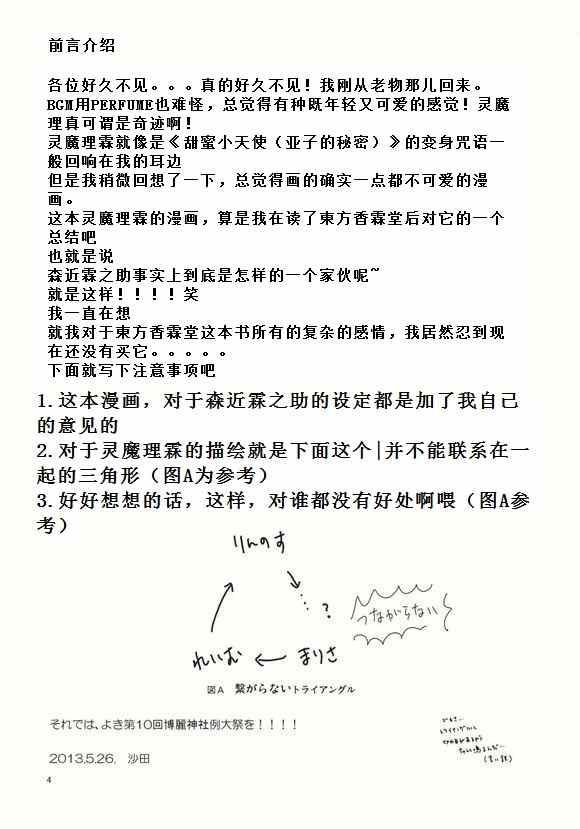 前言介绍
各位好久不见。。。真的好久不见！我刚从老物那儿回来。
BGM用PERFUME也难怪，总觉得有种既年轻又可爱的感觉！灵魔
理真可谓是奇迹啊！
灵魔理霖就像是《甜蜜小天使（亚子的秘密）》的变身咒语一
般回响在我的耳边
但是我稍微回想了一下，总觉得画的确实一点都不可爱的漫
画。
这本灵魔理霖的漫画，算是我在读了東方香霖堂后对它的一个
总结吧
也就是说
森近霖之助事实上到底是怎样的一个家伙呢~
就是这样！！！！笑
我一直在想
就我对于東方香霖堂这本书所有的复杂的感情，我居然忍到现
在还没有买它。。。。。
下面就写下注意事项吧
1.这本漫画，对于森近霖之助的设定都是加了我自己
的意见的
2.对于灵魔理霖的描绘就是下面这个|并不能联系在一
起的三角形（图A为参考）
3.好好想想的话，这样，对谁都没有好处啊喂（图A参
考）
りんのす
?
つながらない
れいむ
まりさ
図A 繋がらないトライアングル
それでは、よき第10回博麗神社例大祭を！！！！
2013.5.26. 沙田
4